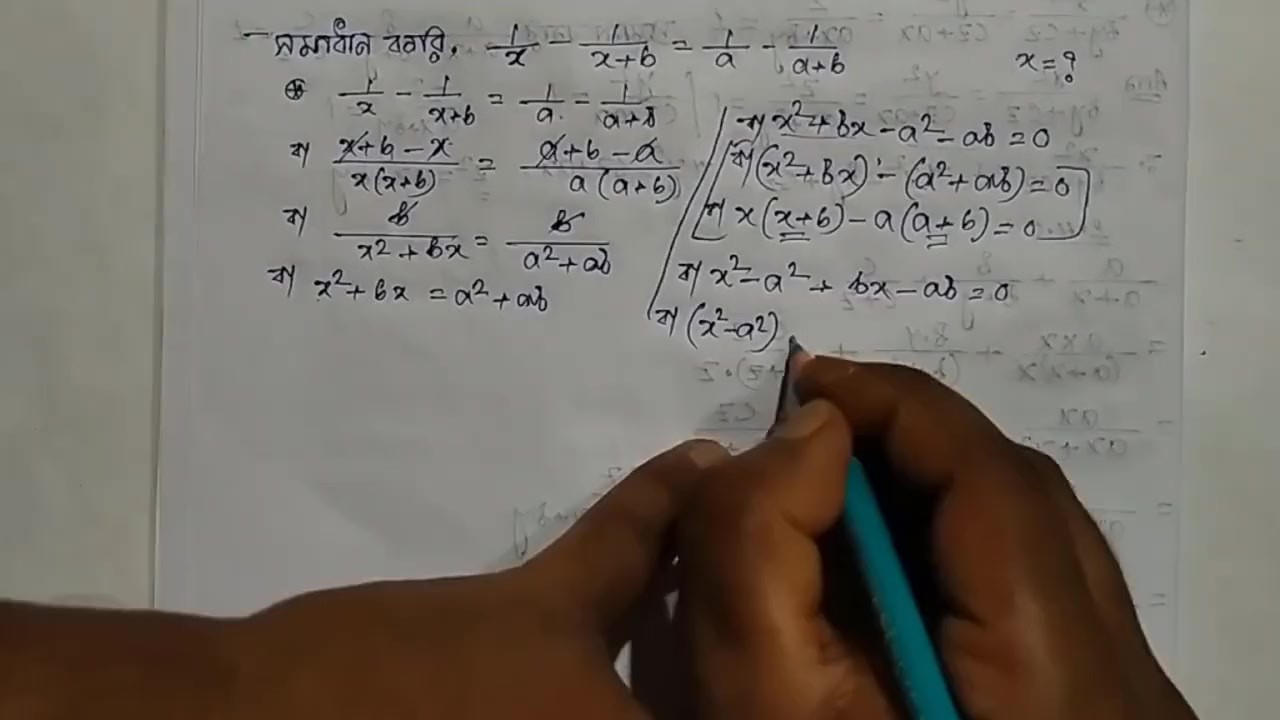 সমাধান করি, 1/x - 1/(x+b) = 1/a - 1/(a+b) x = ?
⊛ 1/x - 1/(x+b) = 1/a - 1/(a+b)
বা (x+b-x)/(x(x+b)) = (a+b-a)/(a(a+b))
বা b/(x²+bx) = b/(a²+ab)
বা x²+bx = a²+ab
বা x²+bx-a²-ab = 0
বা (x²+bx) - (a²+ab) = 0
বা x(x+b) - a(a+b) = 0
বা x²-a²+bx-ab = 0
বা (x²-a²)